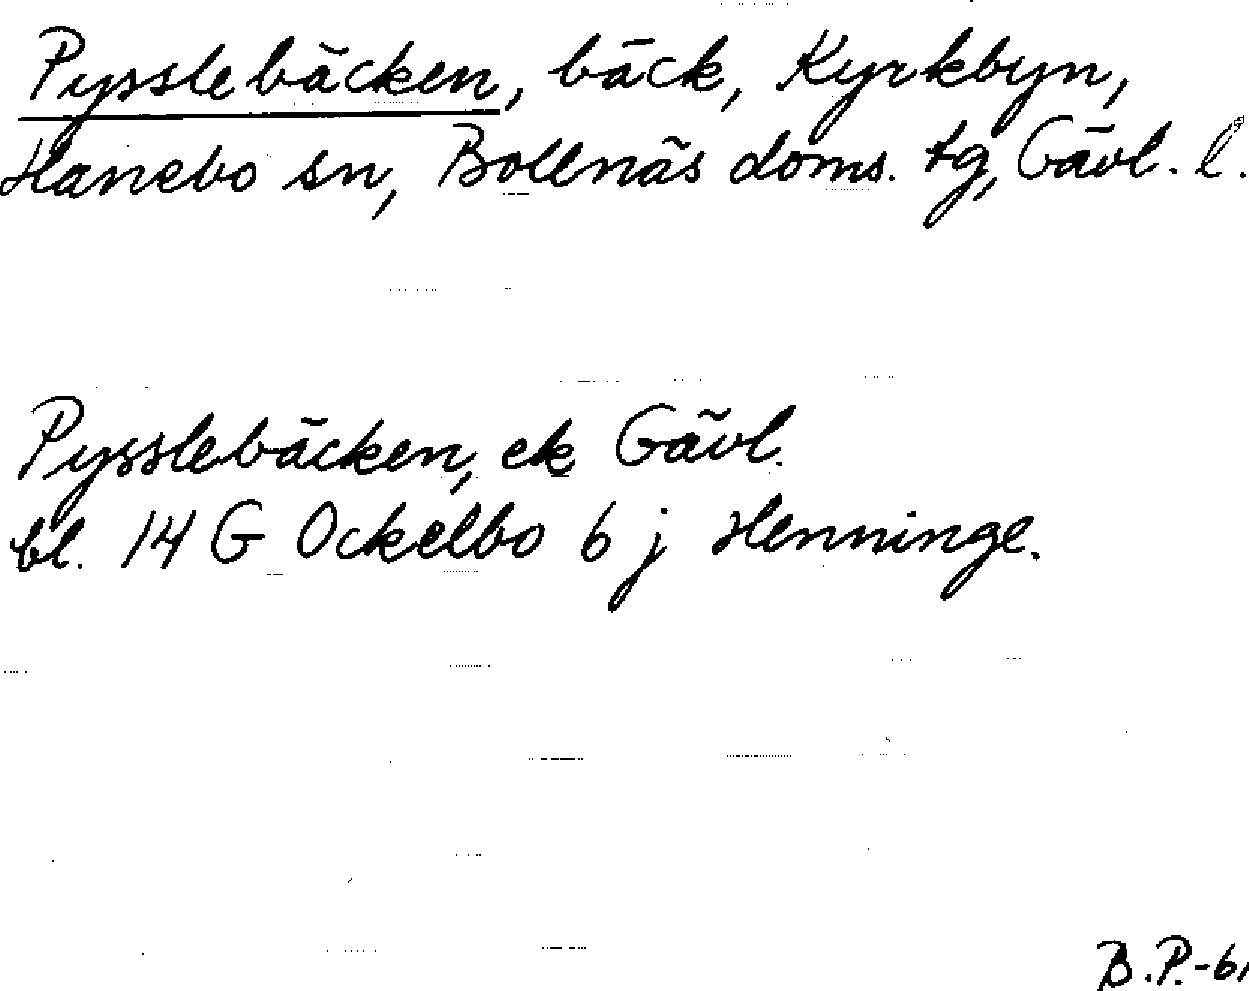 Pysslebäcken, bäck, Kyrkbyn,
Hanebo sn, Bollnäs doms. tg, Gävl. l.
Pysslebäcken, ek Gävl.
bl. 14 G Ockelbo 6 j Henninge.
B.P.-61